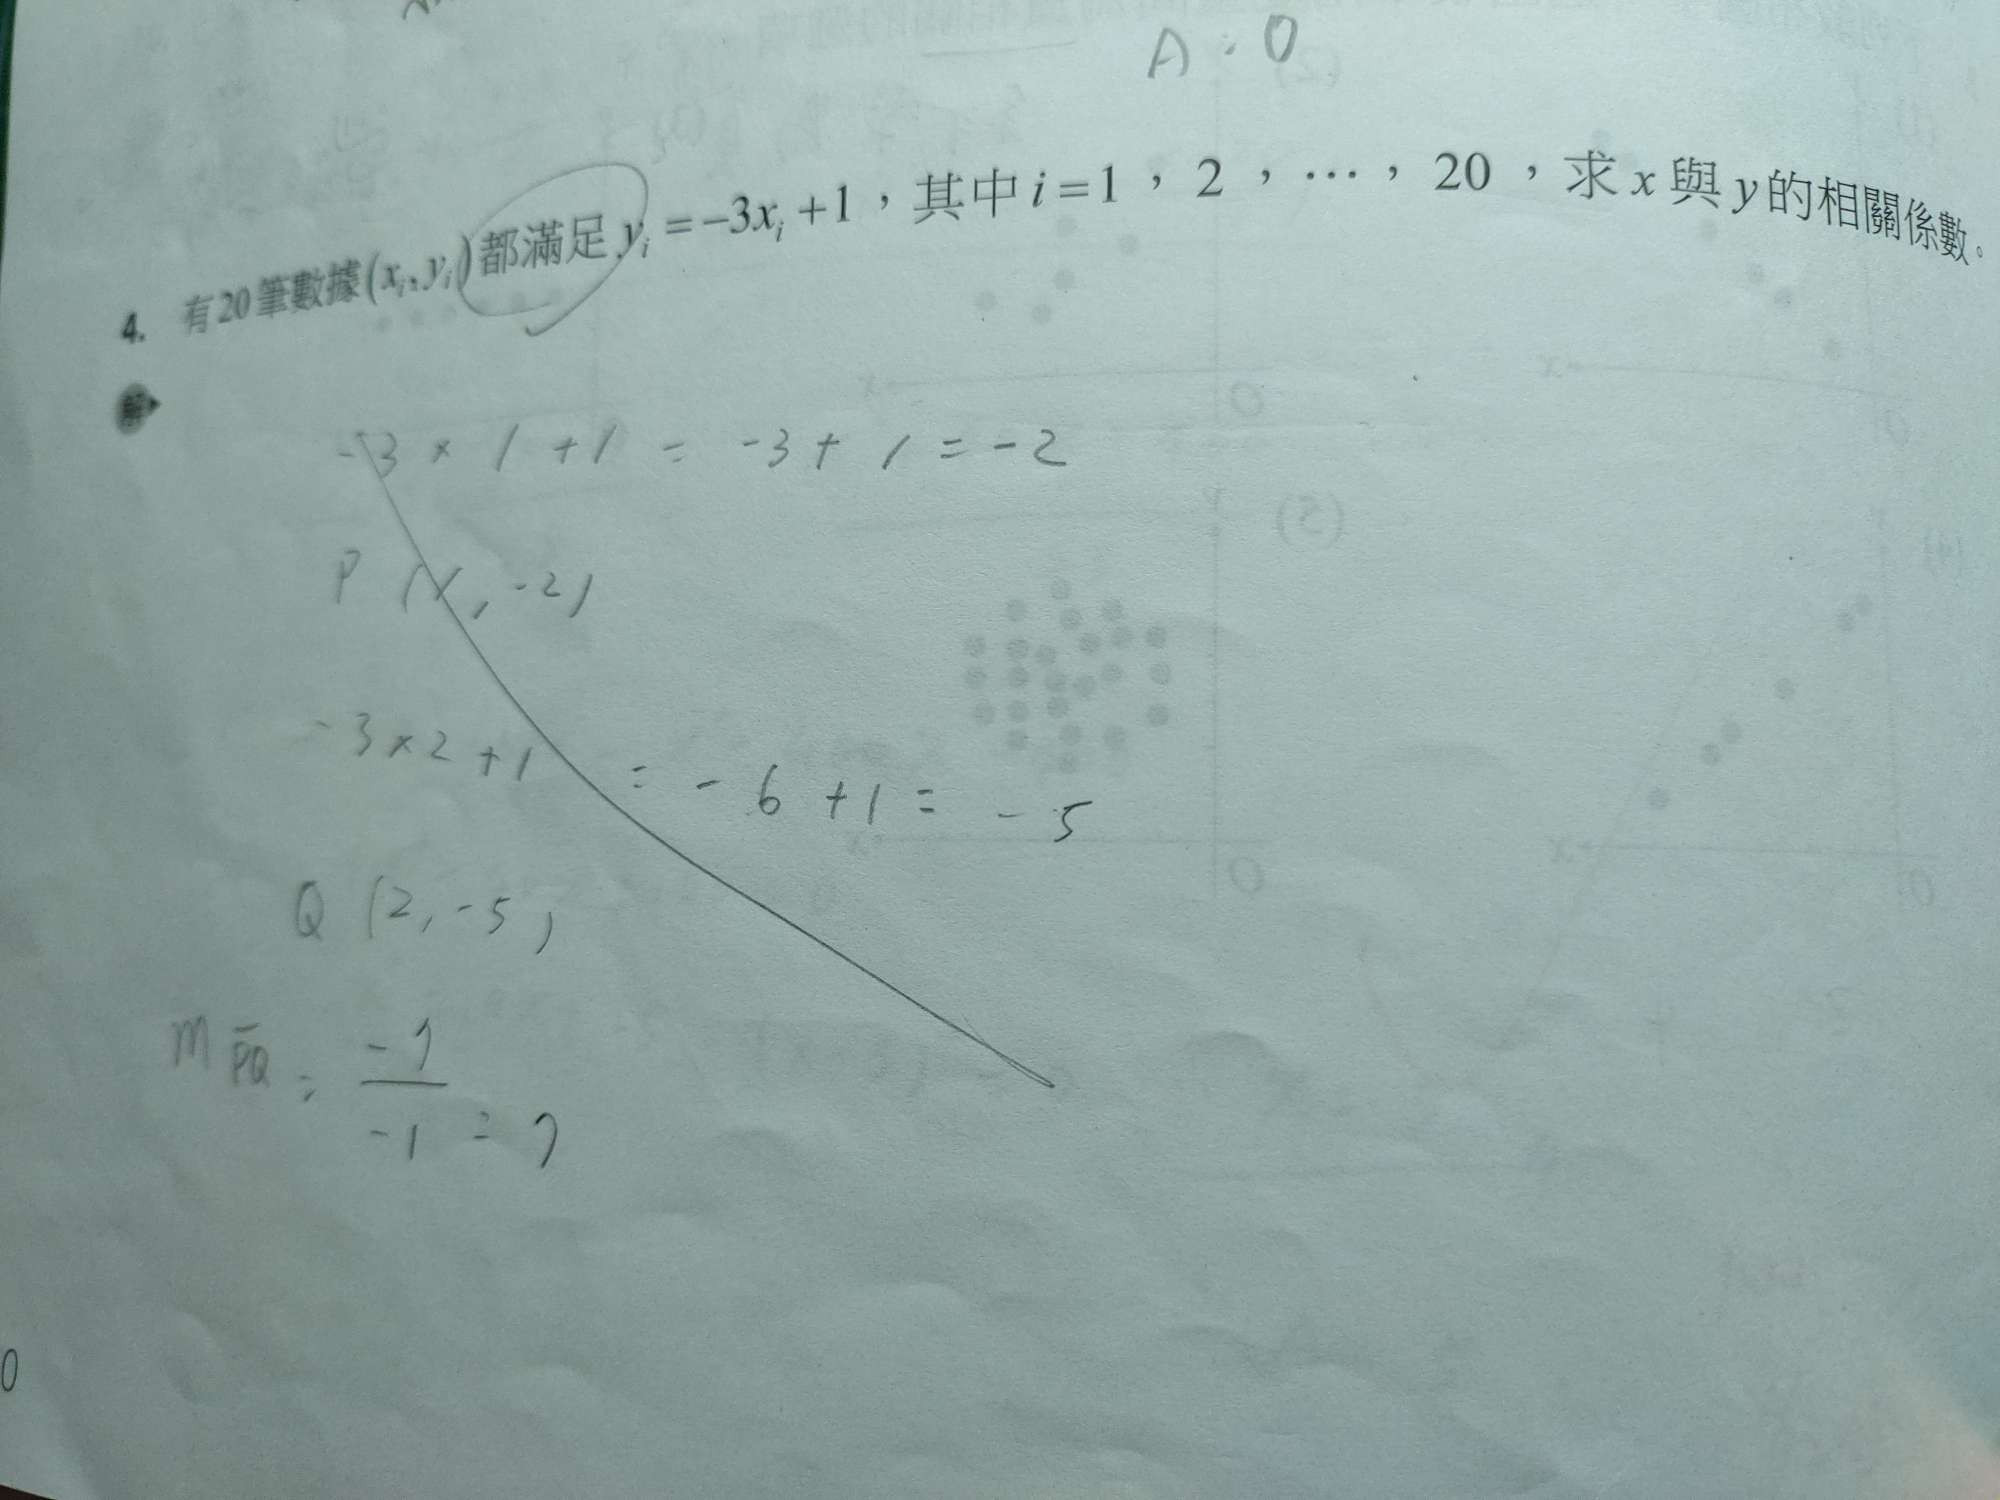 A : 0
4. 有20筆數據(xᵢ、yᵢ)都滿足 yᵢ = -3xᵢ + 1，其中 i = 1，2，⋯，20，求 x 與 y 的相關係數。
解
-3 × 1 + 1 = -3 + 1 = -2
P (1, -2)
-3 × 2 + 1 = -6 + 1 = -5
Q (2, -5)
m PQ = -7 / -1 = 7
0